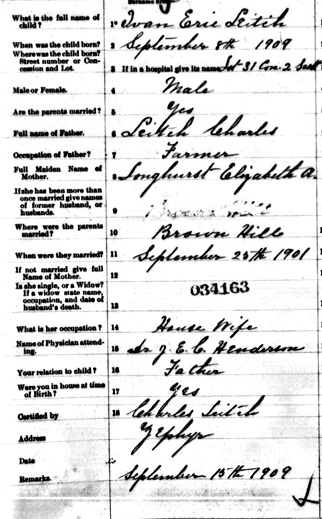 What is the full name of child? 1 Ivan Eric Leitch
When was the child born? 2 September 8th 1909
Where was the child born? Street number or Concession and Lot. 3 If in a hospital give its name. Lot 31 Con. 2 Scott
Male or Female. 4 Male
Are the parents married? 5 Yes
Full name of Father. 6 Leitch Charles
Occupation of Father? 7 Farmer
Full Maiden Name of Mother. 8 Longhurst Elizabeth A.
If she has been more than once married give names of former husband, or husbands. 9
Where were the parents married? 10 Brown Hill
When were they married? 11 September 25th 1901
If not married give full Name of Mother. 12
Is she single, or a Widow? If a widow state name, occupation, and date of husband's death. 13 034163
What is her occupation? 14 House Wife
Name of Physician attending. 15 Dr J. E. C. Henderson
Your relation to child? 16 Father
Were you in house at time of Birth? 17 Yes
Certified by 18 Charles Leitch
Address Zephyr
Date
Remarks. September 15th 1909